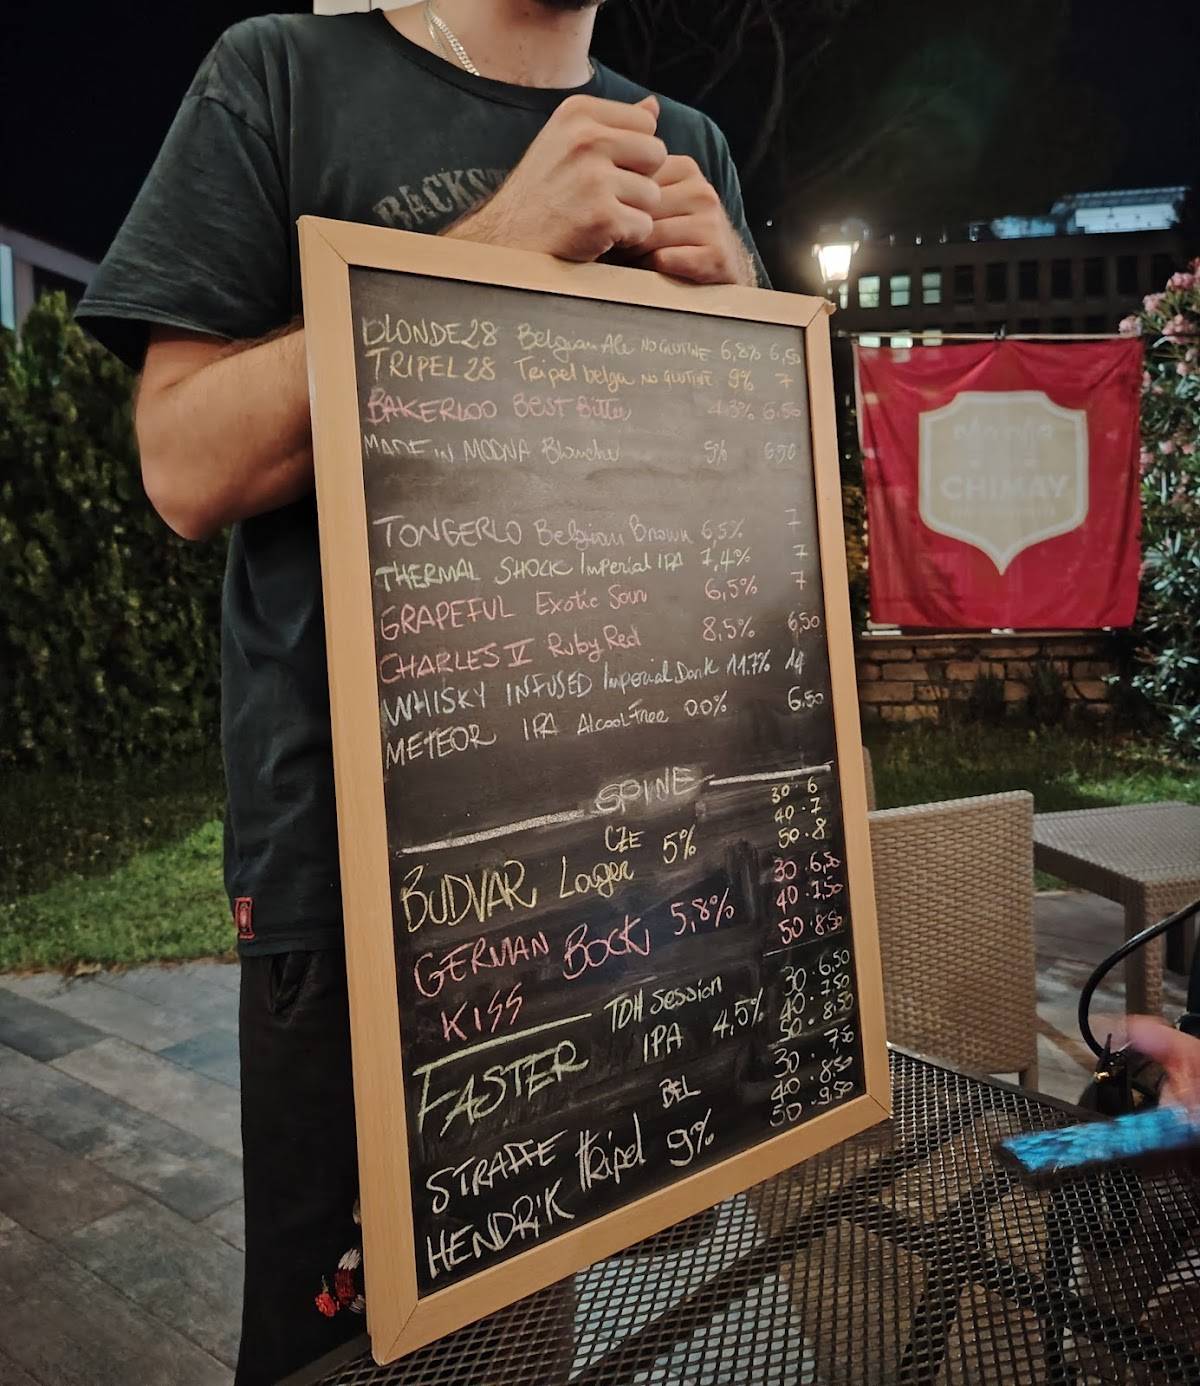 BACKST
BLONDE28 Belgian Ale NO GLUTINE 6,8% 6,50
TRIPEL28 Tripel belga NO GLUTINE 9% 7
BAKERLOO BEST Bitter 4.3% 6.50
MADE IN MODNA Blanche 5% 6.50
TONGERLO Belgian Brown 6,5% 7
THERMAL SHOCK Imperial IPA 7,4% 7
GRAPEFUL Exotic Sour 6,5% 7
CHARLES V Ruby Red 8,5% 6,50
WHISKY INFUSED Imperial Dark 11.7% 14
METEOR IPA Alcool-Free 0.0% 6.50
SPINE
BUDVAR CZE Lager 5%
30 · 6
40 · 7
50 · 8
GERMAN BOCK 5,8%
KISS
30 · 6,50
40 · 7,50
50 · 8,50
FASTER TDH Session
IPA 4.5%
30 · 6.50
40 · 7.50
50 · 8.50
STRAFFE
HENDRIK tripel BEL 9%
30 · 7.50
40 · 8.50
50 · 9.50
CHIMAY